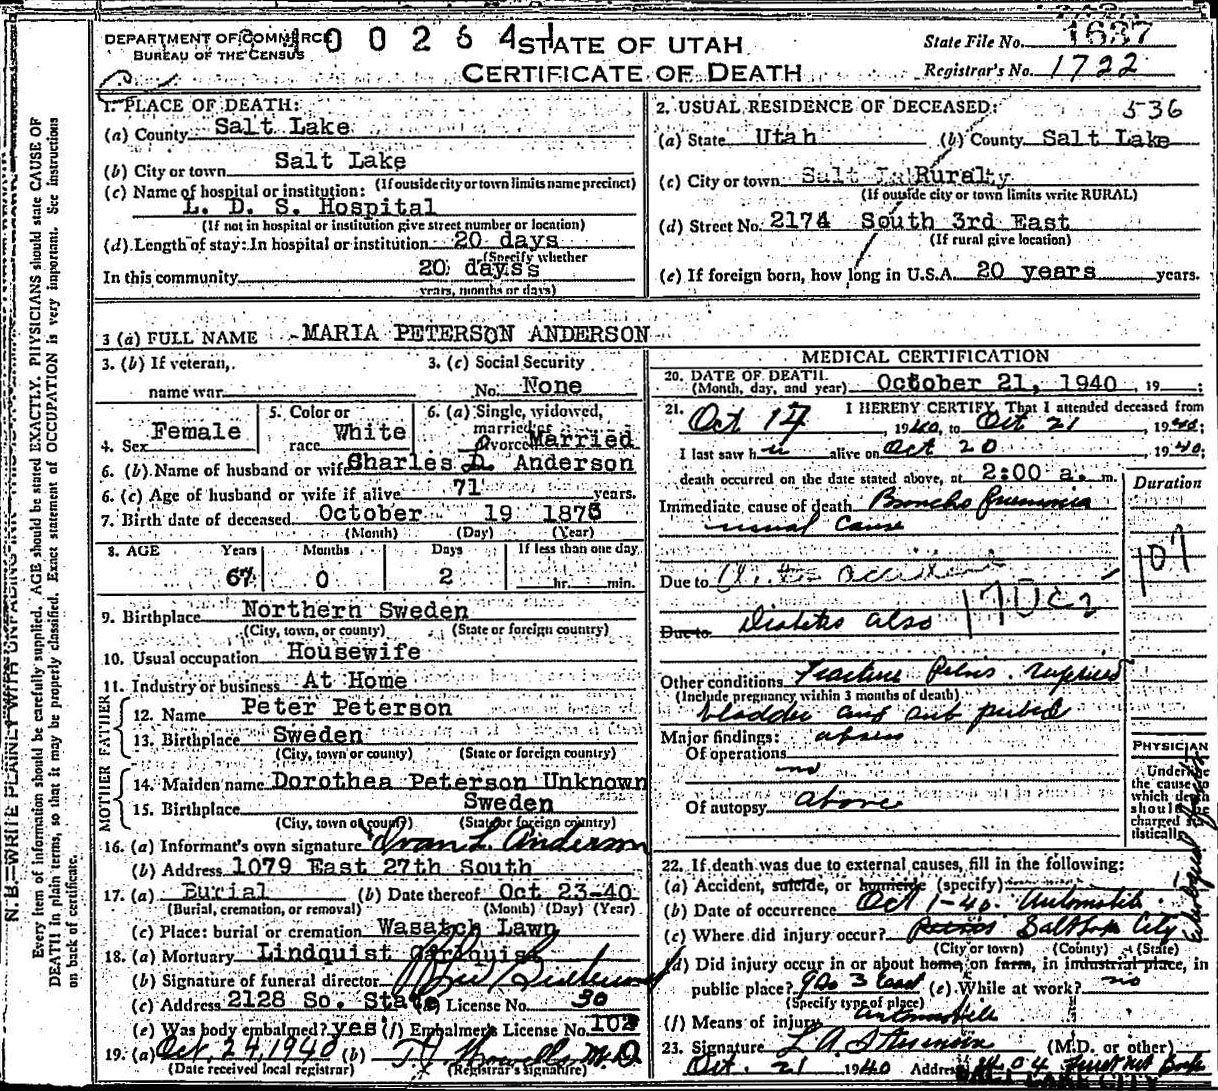 DEPARTMENT OF COMMERCE
BUREAU OF THE CENSUS
0 0 2 6 4 1
STATE OF UTAH
CERTIFICATE OF DEATH
State File No. 1637
Registrar's No. 1722
1. PLACE OF DEATH:
(a) County Salt Lake
(b) City or town Salt Lake
(If outside city or town limits name precinct)
(c) Name of hospital or institution:
L. D. S. Hospital
(If not in hospital or institution give street number or location)
(d) Length of stay: In hospital or institution 20 days
(Specify whether
In this community 20 days
years, months or days)
2. USUAL RESIDENCE OF DECEASED: 536
(a) State Utah (b) County Salt Lake
(c) City or town Rural
(If outside city or town limits write RURAL)
(d) Street No. 2174 South 3rd East
(If rural give location)
(e) If foreign born, how long in U.S.A. 20 years years.
3 (a) FULL NAME MARIA PETERSON ANDERSON
3. (b) If veteran,
name war
3. (c) Social Security
No. None
4. Sex Female
5. Color or
race White
6. (a) Single, widowed,
married or
divorced Married
6. (b) Name of husband or wife Charles D. Anderson
6. (c) Age of husband or wife if alive 71 years.
7. Birth date of deceased October 19 1873
(Month) (Day) (Year)
8. AGE Years Months Days If less than one day
67 0 2 hr. min.
9. Birthplace Northern Sweden
(City, town, or county) (State or foreign country)
10. Usual occupation Housewife
11. Industry or business At Home
FATHER
12. Name Peter Peterson
13. Birthplace Sweden
(City, town or county) (State or foreign country)
MOTHER
14. Maiden name Dorothea Peterson Unknown
15. Birthplace Sweden
(City, town or county) (State or foreign country)
16. (a) Informant's own signature Ivan L. Anderson
(b) Address 1079 East 27th South
17. (a) Burial (b) Date thereof Oct 23-40
(Burial, cremation, or removal) (Month) (Day) (Year)
(c) Place: burial or cremation Wasatch Lawn
18. (a) Mortuary Lindquist
(b) Signature of funeral director
(c) Address 2128 So. State License No. 30
(e) Was body embalmed? yes (f) Embalmer's License No. 102
19. (a) Oct. 24, 1940 (b) T. J. Howells M.D
(Date received local registrar) (Registrar's signature)
MEDICAL CERTIFICATION
20. DATE OF DEATH
(Month, day, and year) October 21, 1940, 19
21. I HEREBY CERTIFY, That I attended deceased from
Oct 17, 1940, to Oct 21, 1940;
I last saw h alive on Oct 20 1940;
death occurred on the date stated above, at 2:00 a. m.
Duration
Immediate cause of death Broncho Pneumonia
usual cause
107
Due to accident
170c2
Due to Diabetis also
Other conditions Fracture Pelvis. ruptured
(Include pregnancy within 3 months of death)
bladder and sub pubic
Major findings:
Of operations no
Of autopsy above
PHYSICIAN
Underline
the cause to
which death
should be
charged sta-
tistically
22. If death was due to external causes, fill in the following:
(a) Accident, suicide, or homicide (specify)
(b) Date of occurrence Oct 1-40. Automobile
(c) Where did injury occur? Salt Lake City
(City or town) (County) (State)
(d) Did injury occur in or about home, on farm, in industrial place, in
public place? 9 So 3 East (e) While at work? no
(Specify type of place)
(f) Means of injury Automobile
23. Signature L. A. Stevenson (M.D. or other)
Oct. 21 1940 Address First Nat Bank
N. B.—WRITE PLAINLY WITH UNFADING INK
Every item of information should be carefully supplied. AGE should be stated EXACTLY. PHYSICIANS should state CAUSE OF
DEATH in plain terms, so that it may be properly classified. Exact statement of OCCUPATION is very important. See instructions
on back of certificate.